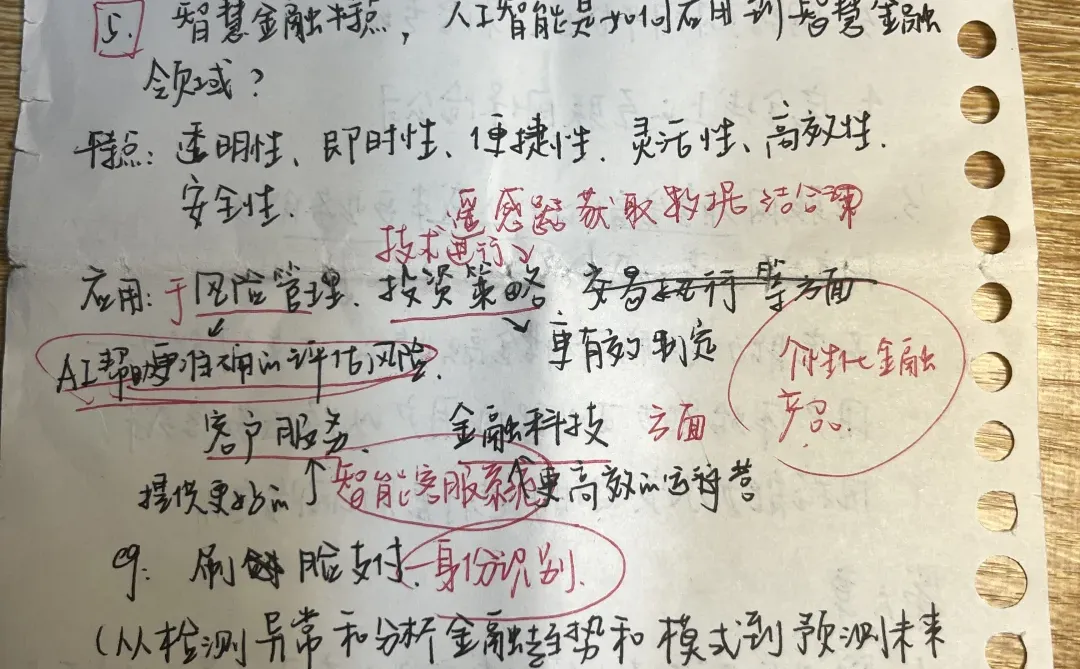 5. 智慧金融特点，人工智能是如何应用到智慧金融
领域？
特点：透明性、即时性、便捷性、灵活性、高效性、
安全性.
遥感器获取数据结合
技术进行
应用：于风险管理、投资策略 交易 等方面
更有效制定
AI帮 更准确的评估风险.
个性化金融
产品.
客户服务、金融科技 方面
提供更好的 智能客服系统 更高效的运营
eg: 刷脸支付、身份识别.
(从检测异常和分析金融趋势和模式到预测未来